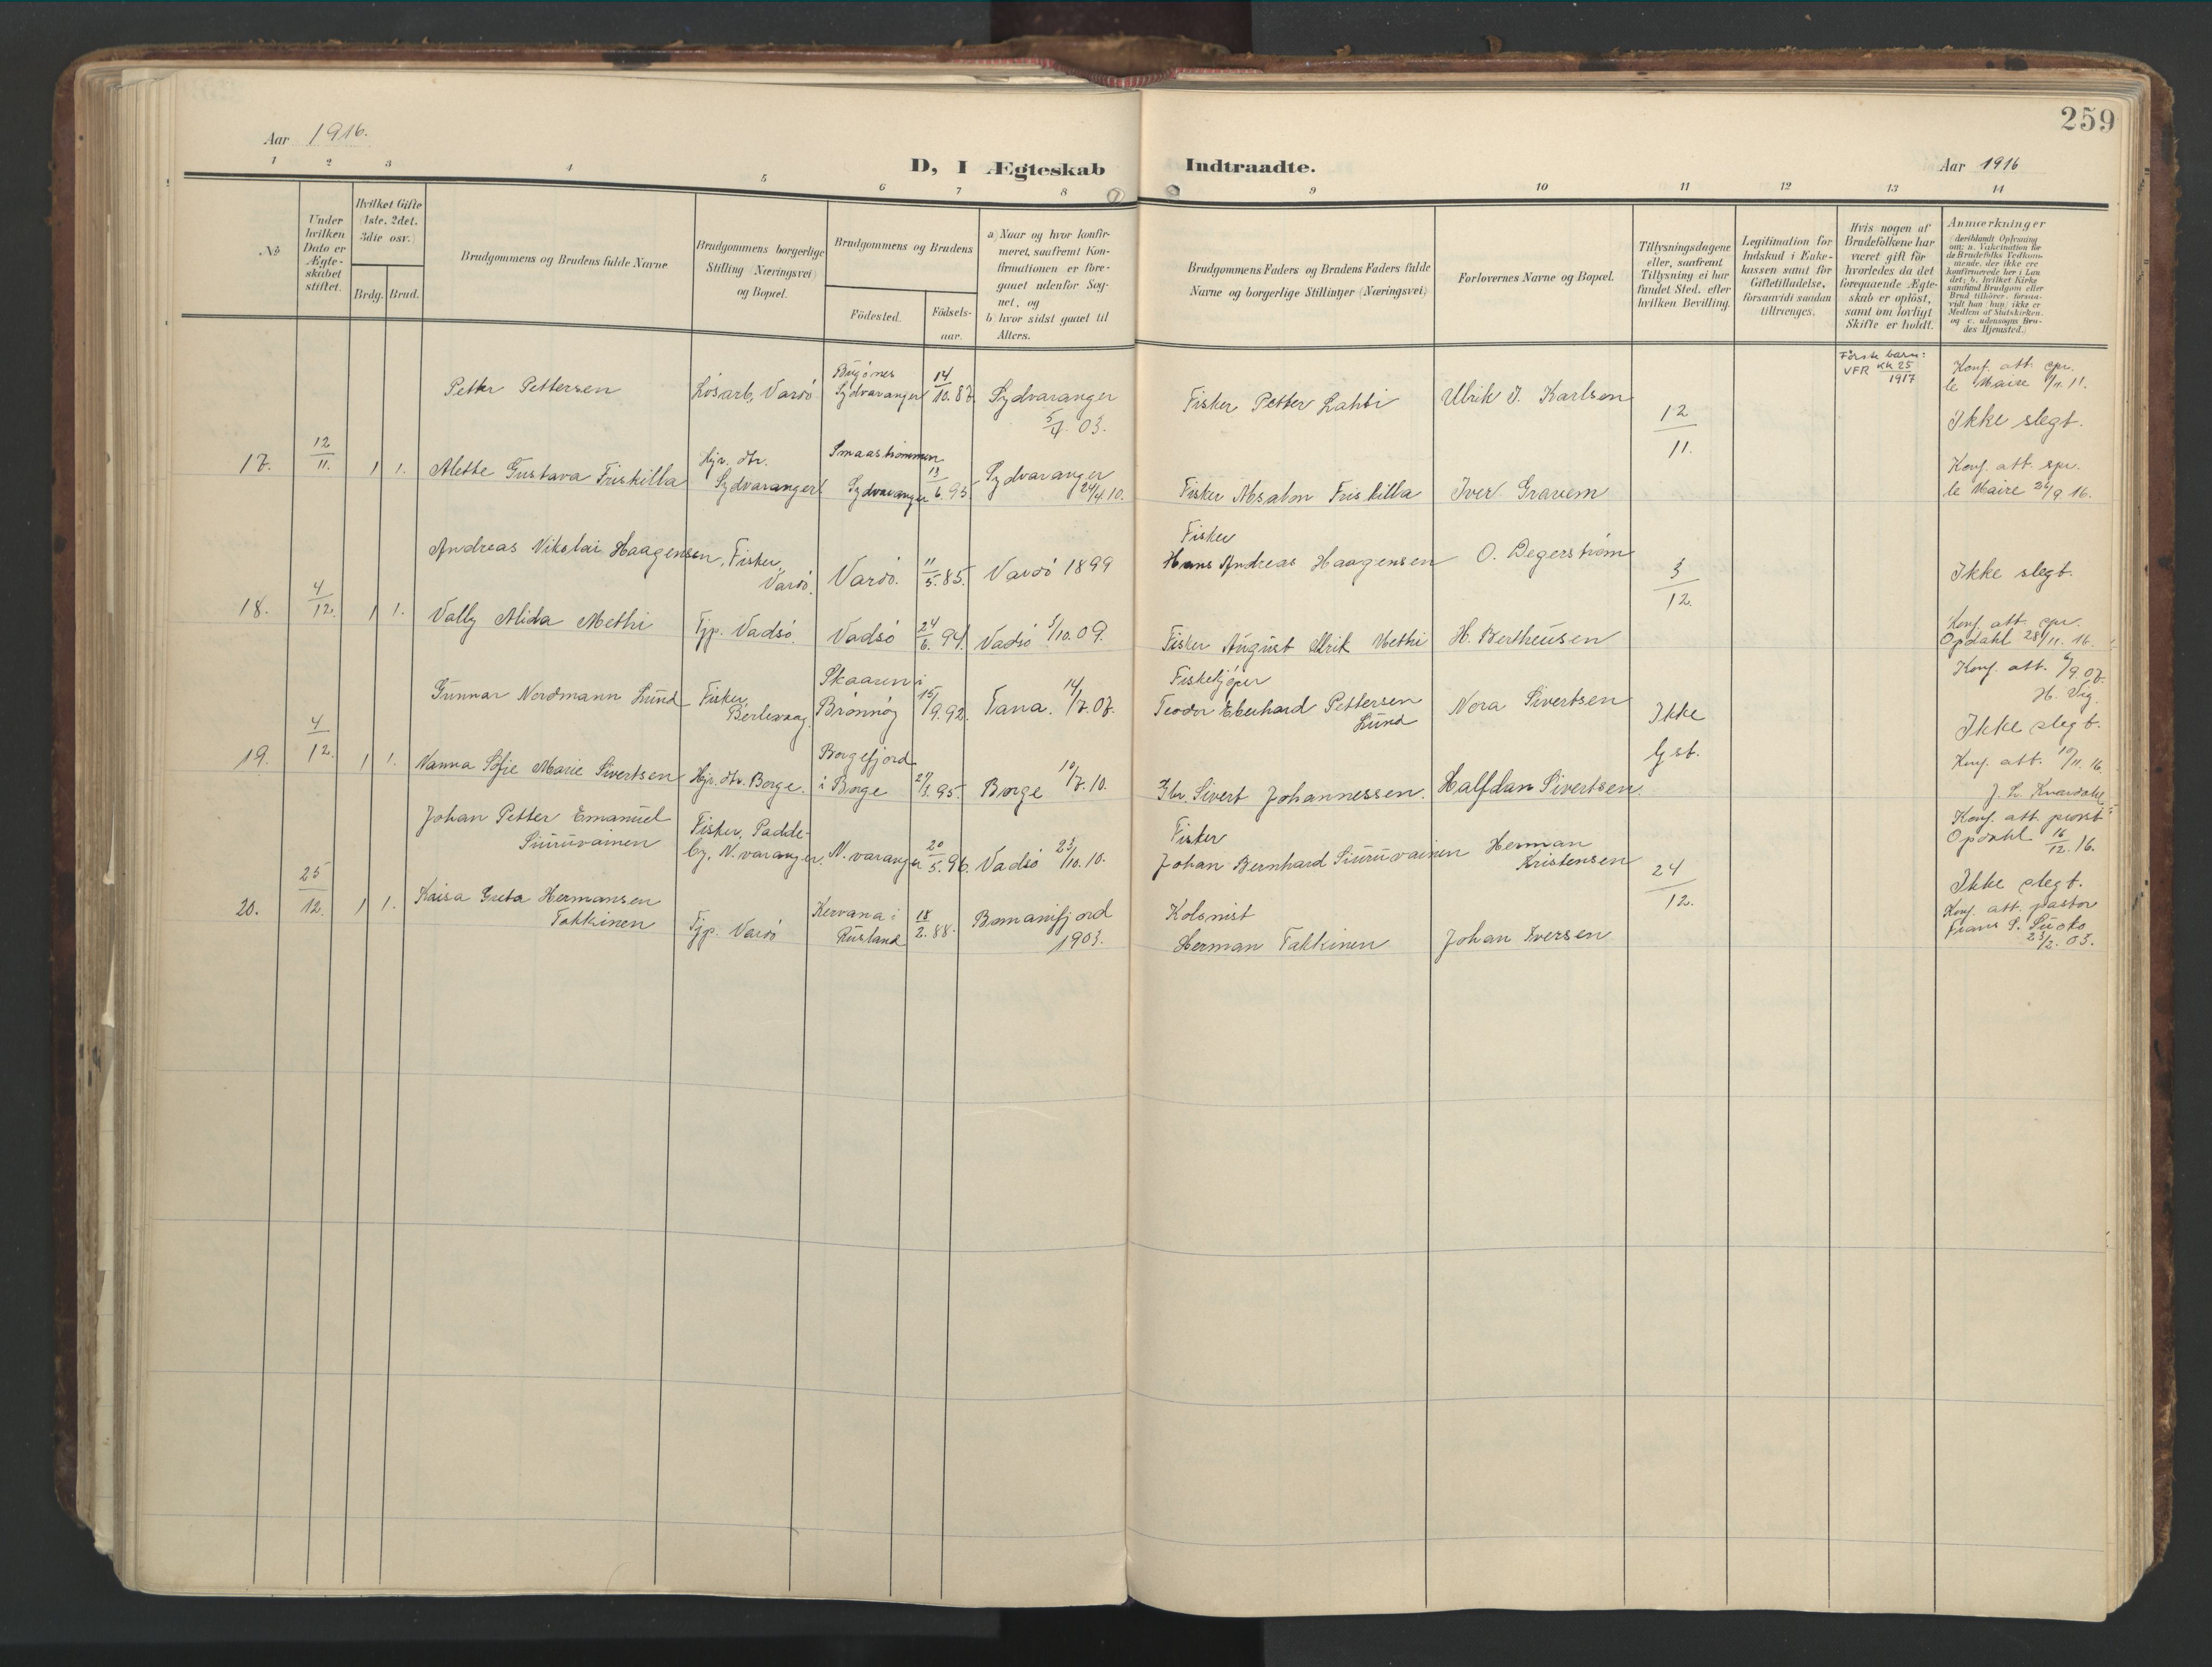 259
Aar 1916.
D, I Ægteskab Indtraadte.
Aar 1916
1 2 3 4 5 6 7 8 9 10 11 12 13 14
No
Under hvilken Dato er Ægteskabet stiftet.
Hvilket Gifte (1ste. 2det. 3die osv.)
Brdg. Brud.
Brudgommens og Brudens fulde Navne
Brudgommens borgerlige Stilling (Næringsvei) og Bopæl.
Brudgommens og Brudens
Födested.
Födsels-aar.
a) Naar og hvor konfir-
meret, saafremt Kon-
firmationen er fore-
gaaet udenfor Sog-
net, og
b hvor sidst gaaet til
Alters.
Brudgommens Faders og Brudens Faders fulde
Navne og borgerlige Stillinger (Næringsvei)
Forlovernes Navne og Bopæl.
Tillysningsdagene
eller, saafremt
Tillysning ei har
fundet Sted, efter
hvilken Bevilling.
Legitimation for
Indskud i Enke-
kassen samt for
Giftetilladelse,
forsaavidt saadan
tiltrænges.
Hvis nogen af
Brudefolkene har
været gift för
hvorledes da det
foregaaende Ægte-
skab er oplöst,
samt om lovligt
Skifte er holdt.
Anmærkninger
(deriblandt Oplysning
om: a. Vakcination for
de Brudefolks Vedkom-
mende, der ikke ere
konfirmerede her i Lan
det; b. hvilket Kirke
samfund Brudgom eller
Brud tilhörer, forsaa-
vidt han hun ikke er
Medlem af Statskirken,
og c. udensogns Bru-
des Hjemsted.)
Petter Pettersen
Lösarb, Vardö
Bugönes
Sydvaranger
14/10.87
Sydvaranger
5/4 03.
Fisker Petter Lahti
Ulrik J. Karlsen
12/11.
Förste barn:
VFR KK 25
1917
Konf. att. spr.
le Maire 1/11.11.
Ikke slegt.
17.
12/11.
1 1.
Alette Gustava Friskilla
Hjr. dtr.
Sydvaranger
Smaaströmmen
Sydvaranger
13/6.95
Sydvaranger
24/4.10.
Fisker Absalon Friskilla
Iver Gravem
Konf. att. spr.
le Maire 26/9.16.
Andreas Nikolai Haagensen,
Fisker,
Vardö.
Vardö.
11/5.85.
Vardö 1899
Fisker
Hans Andreas Haagensen
O. Degerström
3/12.
Ikke slegt.
18.
4/12.
1 1.
Vally Alida Methi
Tjp. Vadsö.
Vadsö
24/6.94.
Vadsö 3/10.09.
Fisker August Ulrik Methi
H. Bertheusen
Konf. att. spr.
Opdahl 28/11.16.
Gunnar Nordmann Lund
Fisker,
Berlevaag.
Skaaren i
Brönnöy
15/9.92.
Tana. 14/7.07.
Fiskekjöper
Teodor Eberhard Pettersen
Lund
Nora Sivertsen
Ikke
lyst.
Konf. att. 6/9.07.
H. Vig.
Ikke slegt.
19.
4/12.
1 1.
Nanna Sofie Marie Sivertsen
Hjr. dtr. Borge.
Borgefjord
i Borge
27/1.95.
Borge 10/7.10.
Gbr. Sivert Johannessen.
Halfdan Sivertsen.
Konf. att. 10/11.16.
J. Sv. Kvardahl
Johan Petter Emanuel
Siuruvainen
Fisker, Padde-
by, N. varanger.
N. varanger
20/5.96.
Vadsö 23/10.10.
Fisker
Johan Bernhard Siuruvainen
Herman
Kristensen
24/12.
Konf. att. prost
Opdahl 16/12.16.
Ikke slegt.
20.
25/12.
1 1.
Kaisa Greta Hermansen
Takkinen
Tjp. Vardö
Kervana i
Rusland
18/2.88.
Bomanifjord
1903.
Kolonist
Herman Takkinen
Johan Iversen
Konf. att. pastor
Frans P. Puoko
23/2.03.